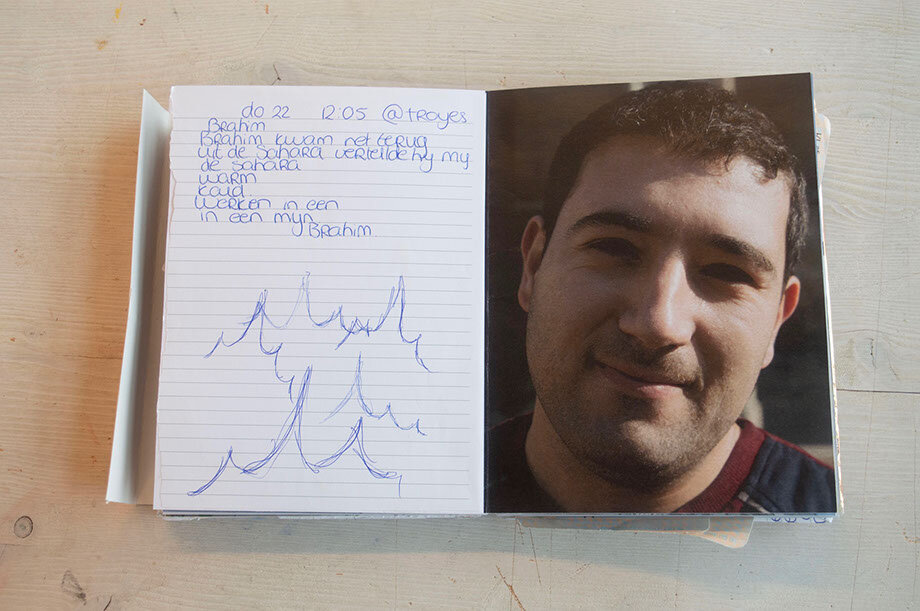 do 22 12:05 @troyes
Brahim
Brahim kwam net terug
uit de Sahara vertelde hy my
de Sahara
warm
koud.
werken in een
in een myn.
Brahim.